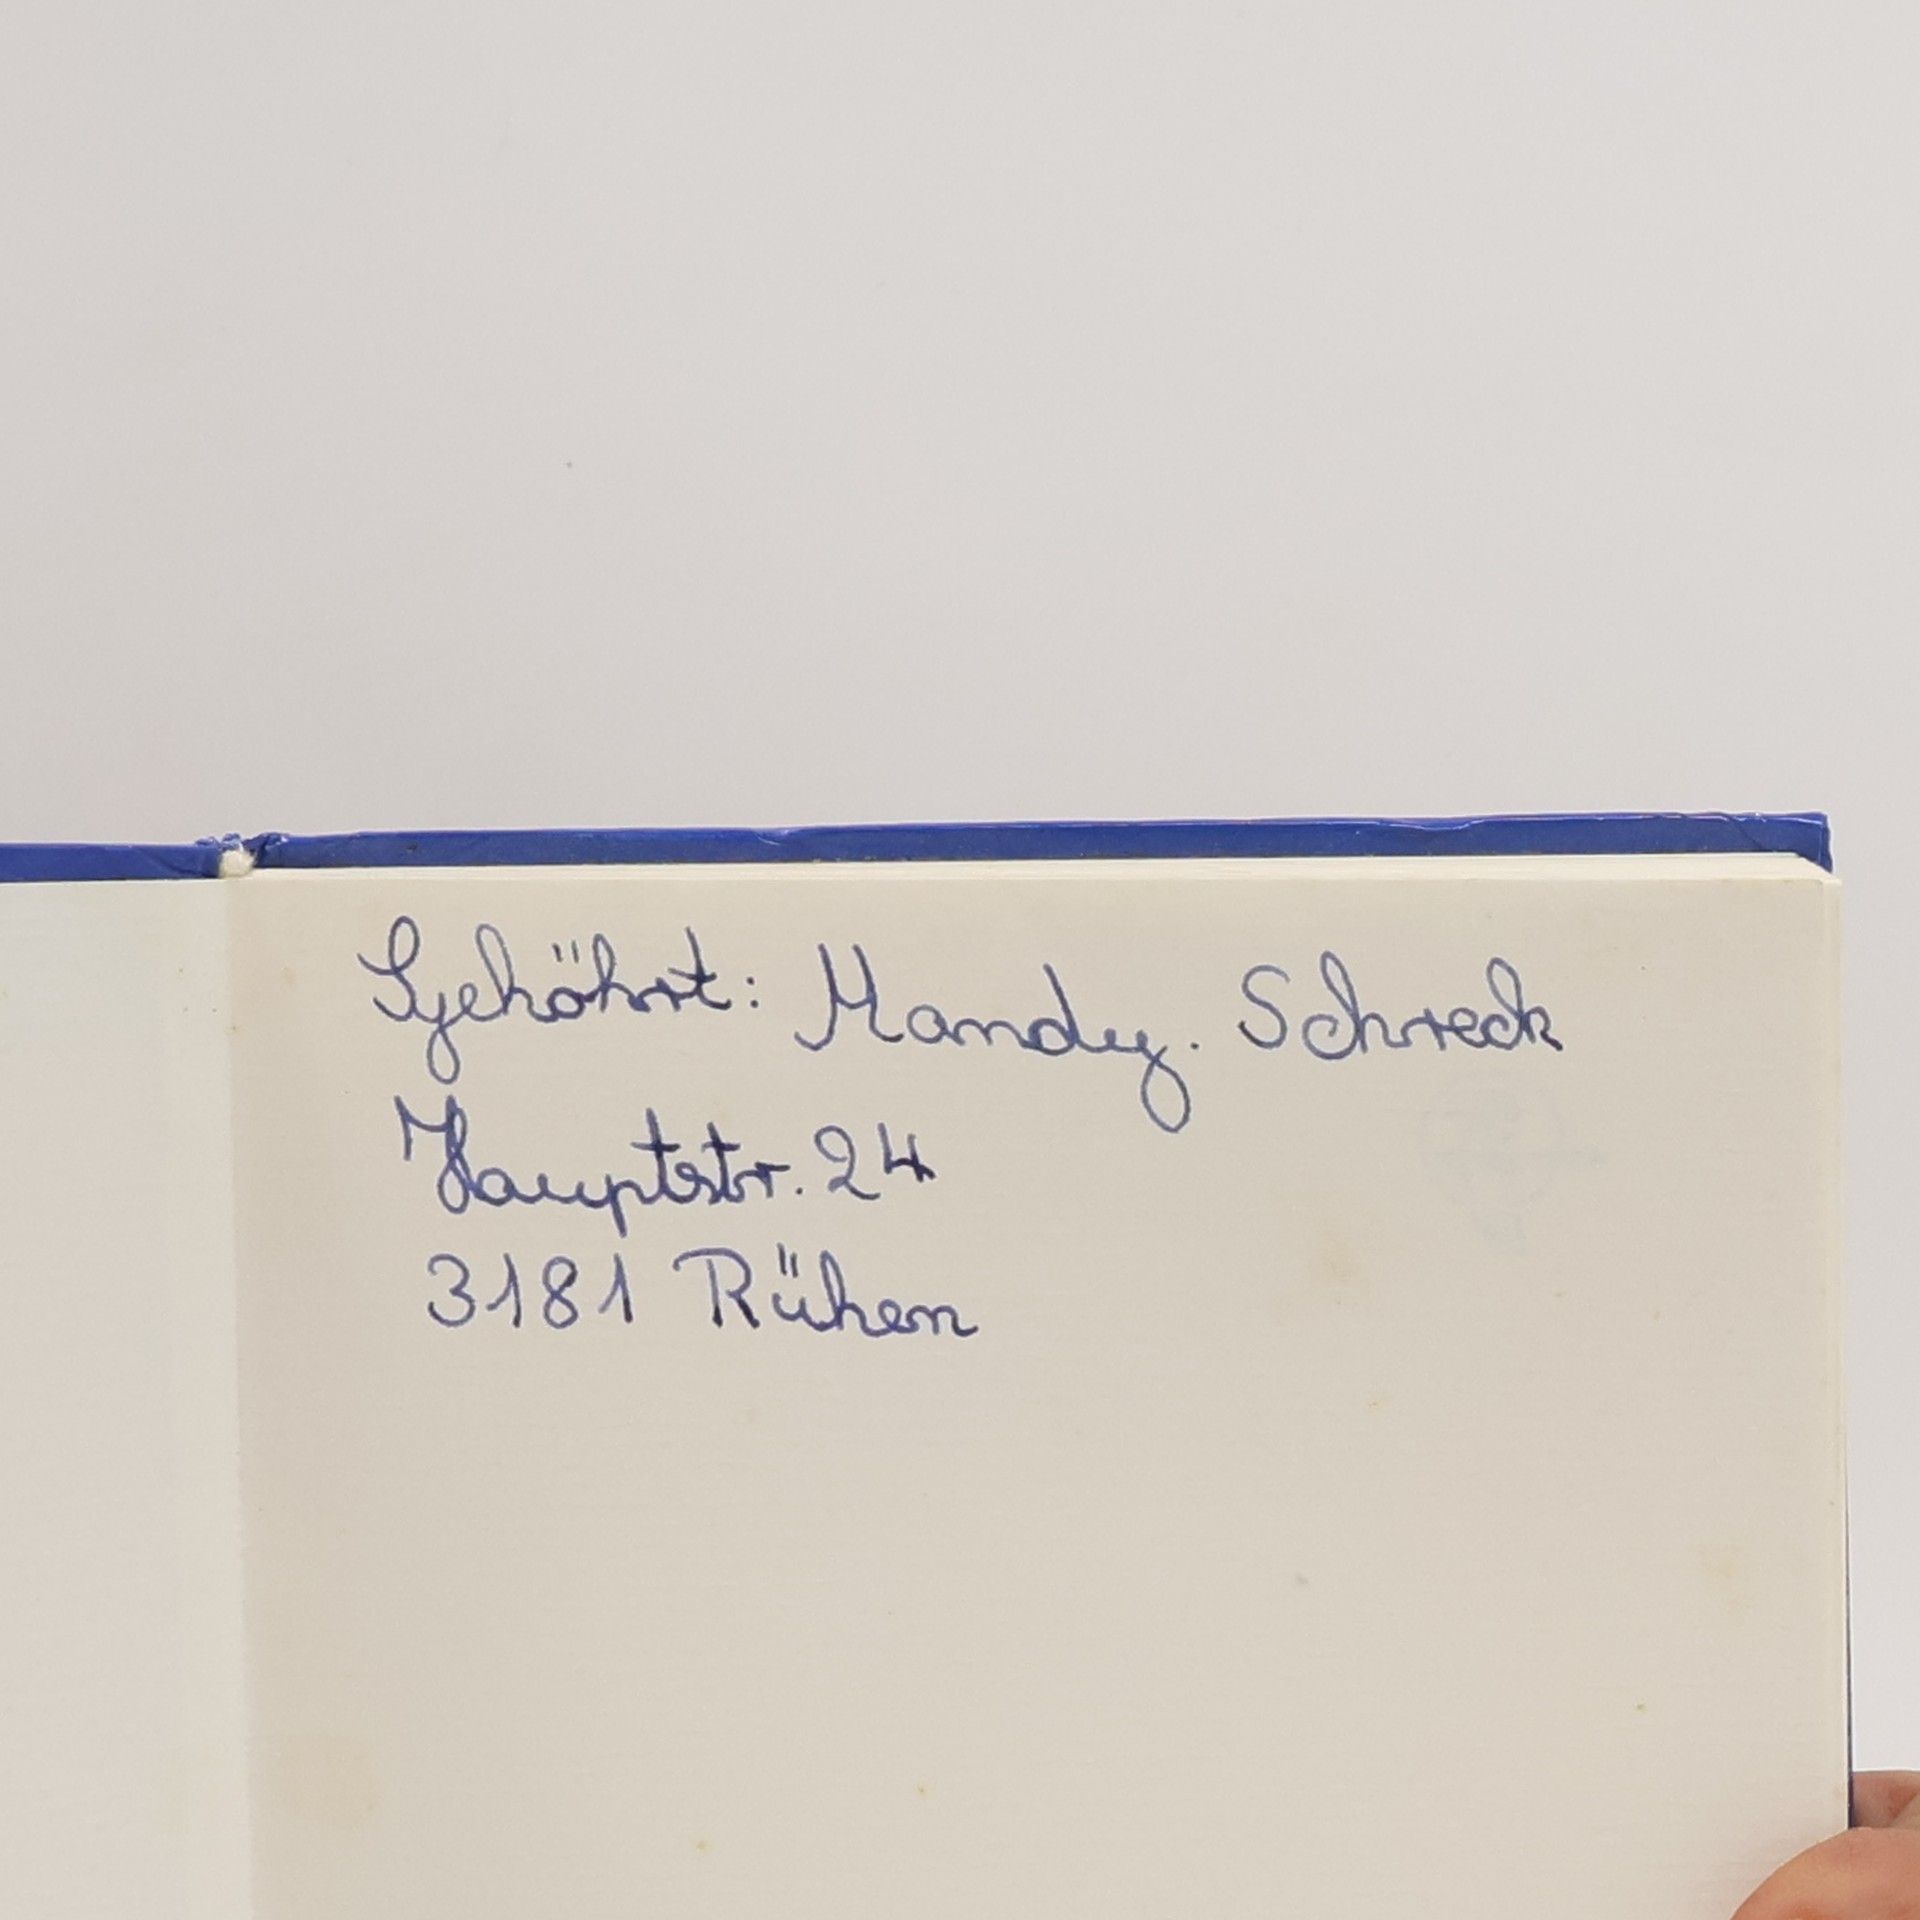 Gehöhrt: Mandy. Schreck
Hauptstr. 24
3181 Rühen